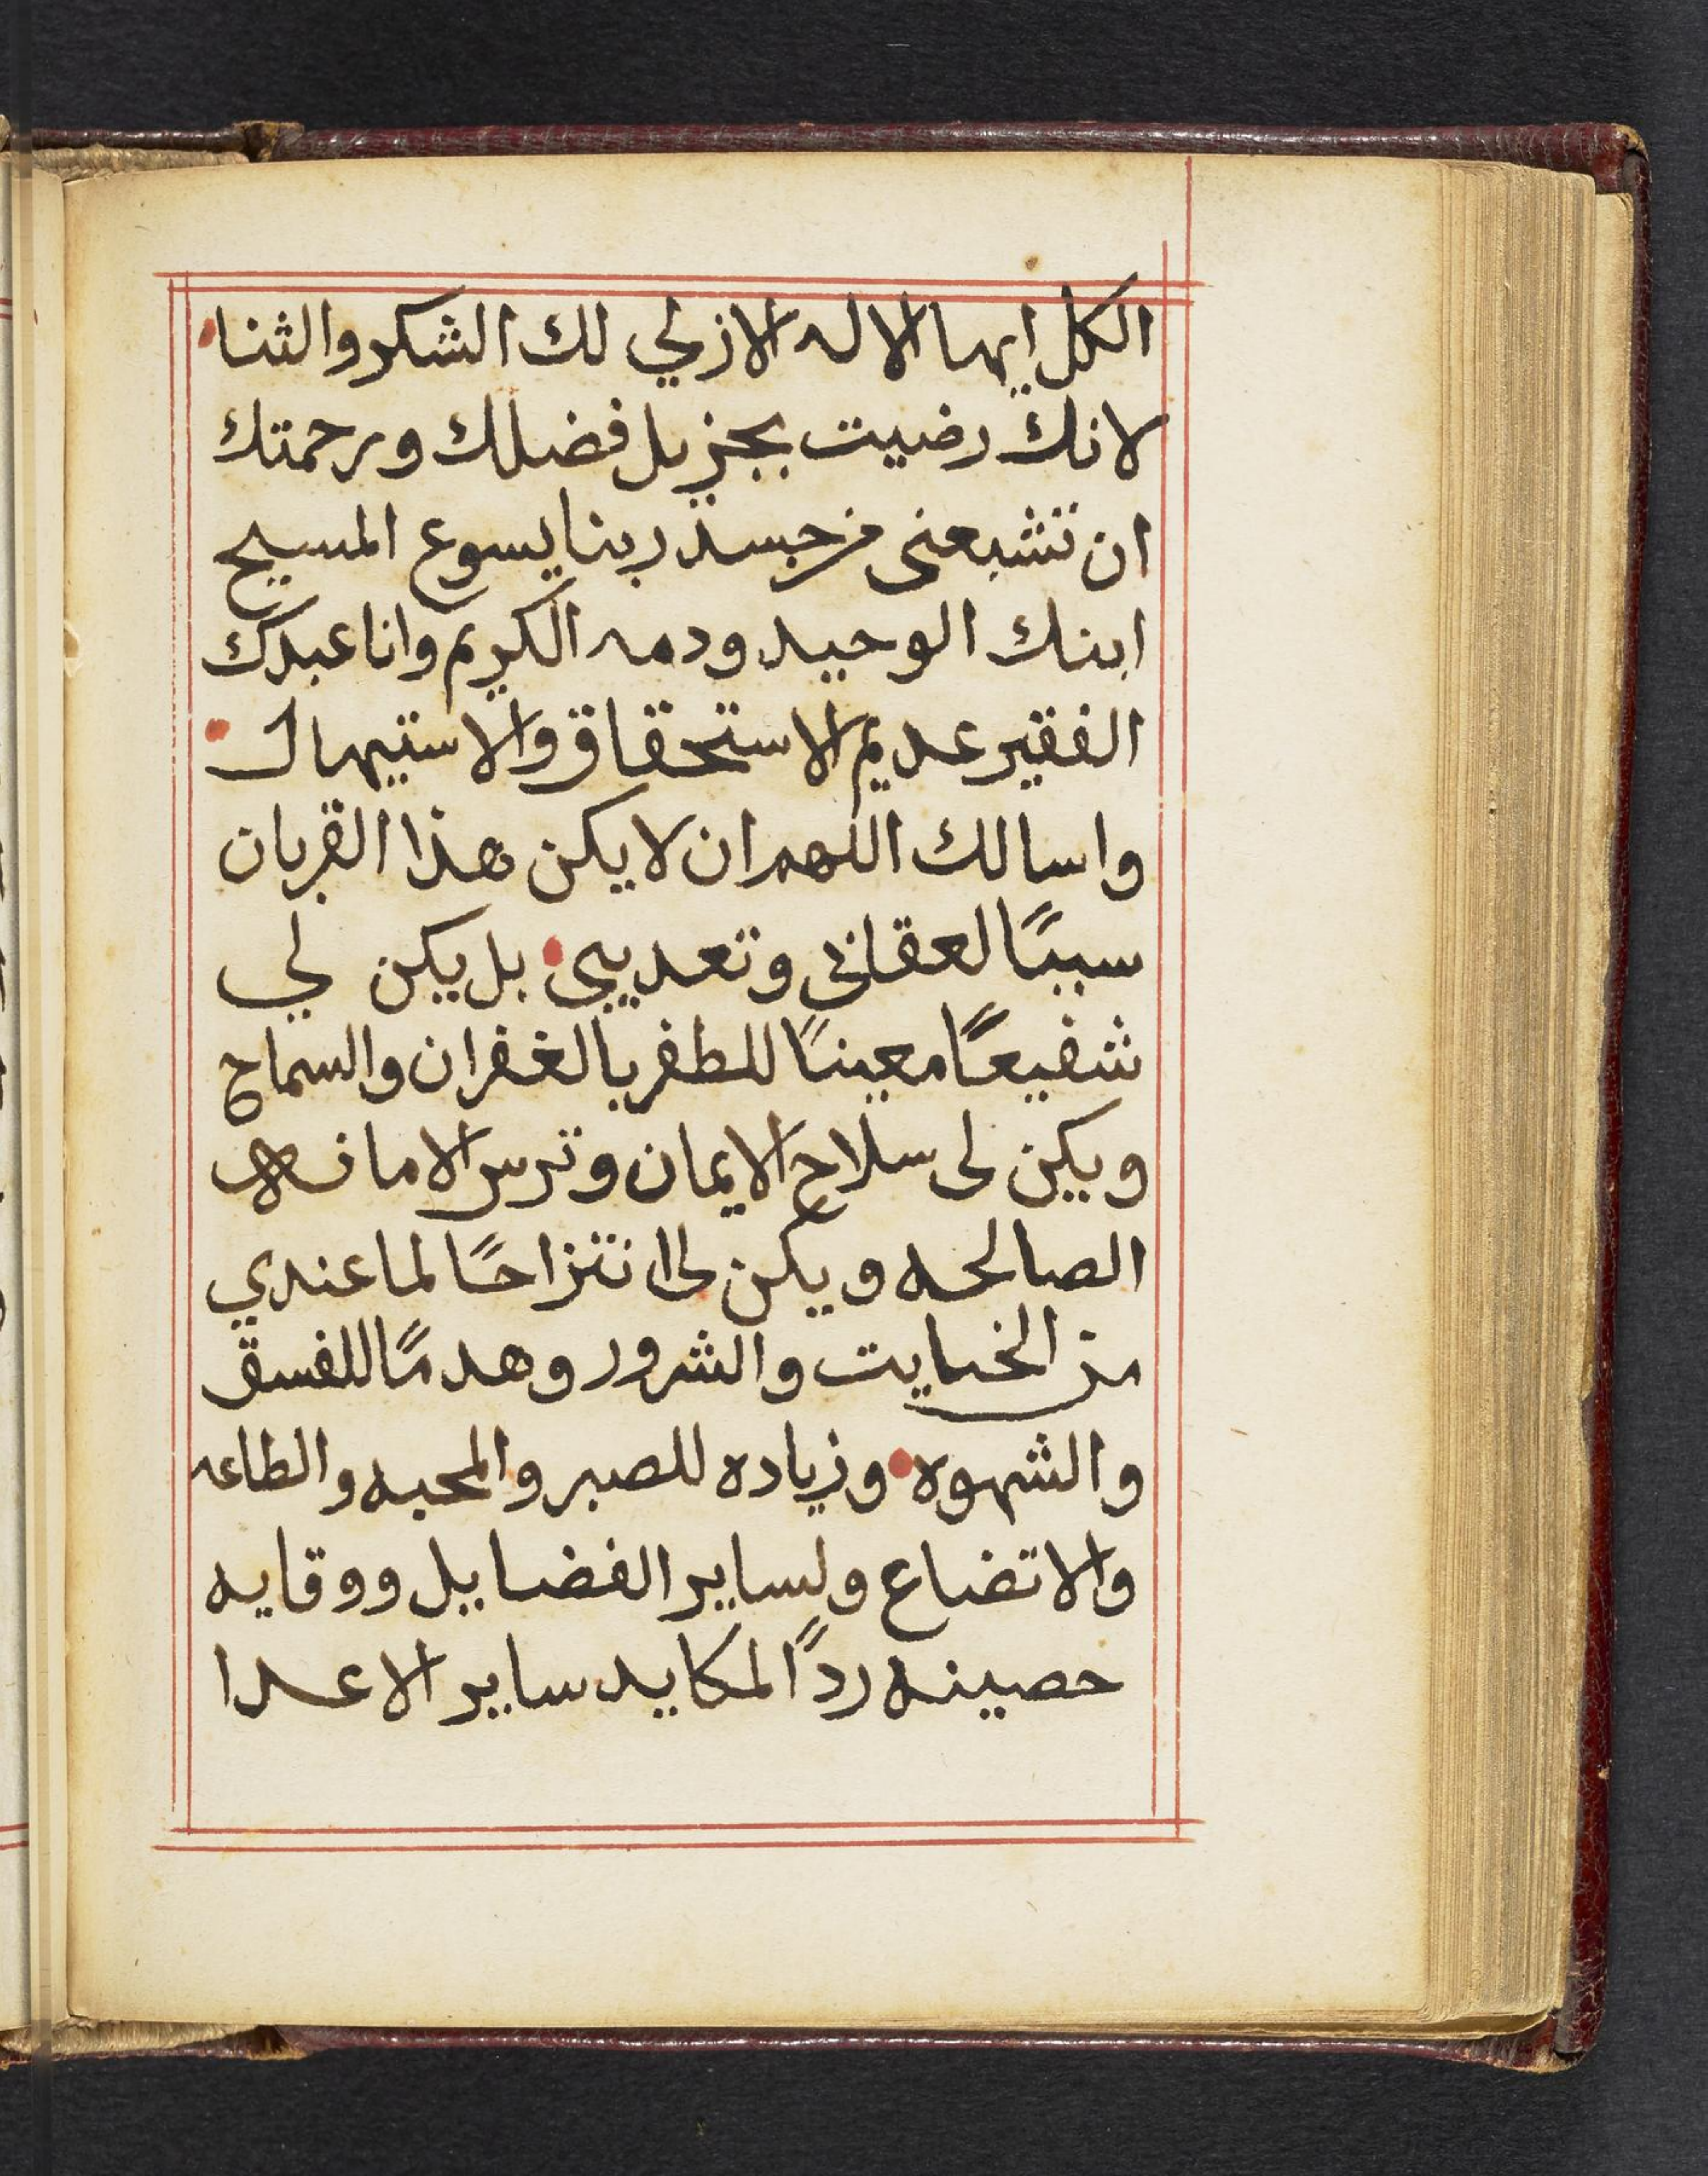 الكل ايها الاله الازلي لك الشكر والثنا
لانك رضيت بجزيل فضلك ورحمتك
ان تشبعنى من جسد ربنا يسوع المسيح
ابنك الوحيد ودمه الكريم وانا عبدك
الفقير عديم الاستحقاق والاستيهال
واسالك اللهم ان لا يكن هذا القربان
سببًا لعقابي وتعديبي بل يكن لي
شفيعًا معينًا للطفر بالغفران والسماح
ويكن لى سلاح الايمان وترس الامانه
الصالحه ويكن لى انتزاحًا لما عندي
من الخبايت والشرور وهدمًا للفسق
والشهوه وزياده للصبر والمحبه والطاعه
والاتضاع ولساير الفضايل ووقايه
حصينه ردًا لمكايد ساير الاعدا